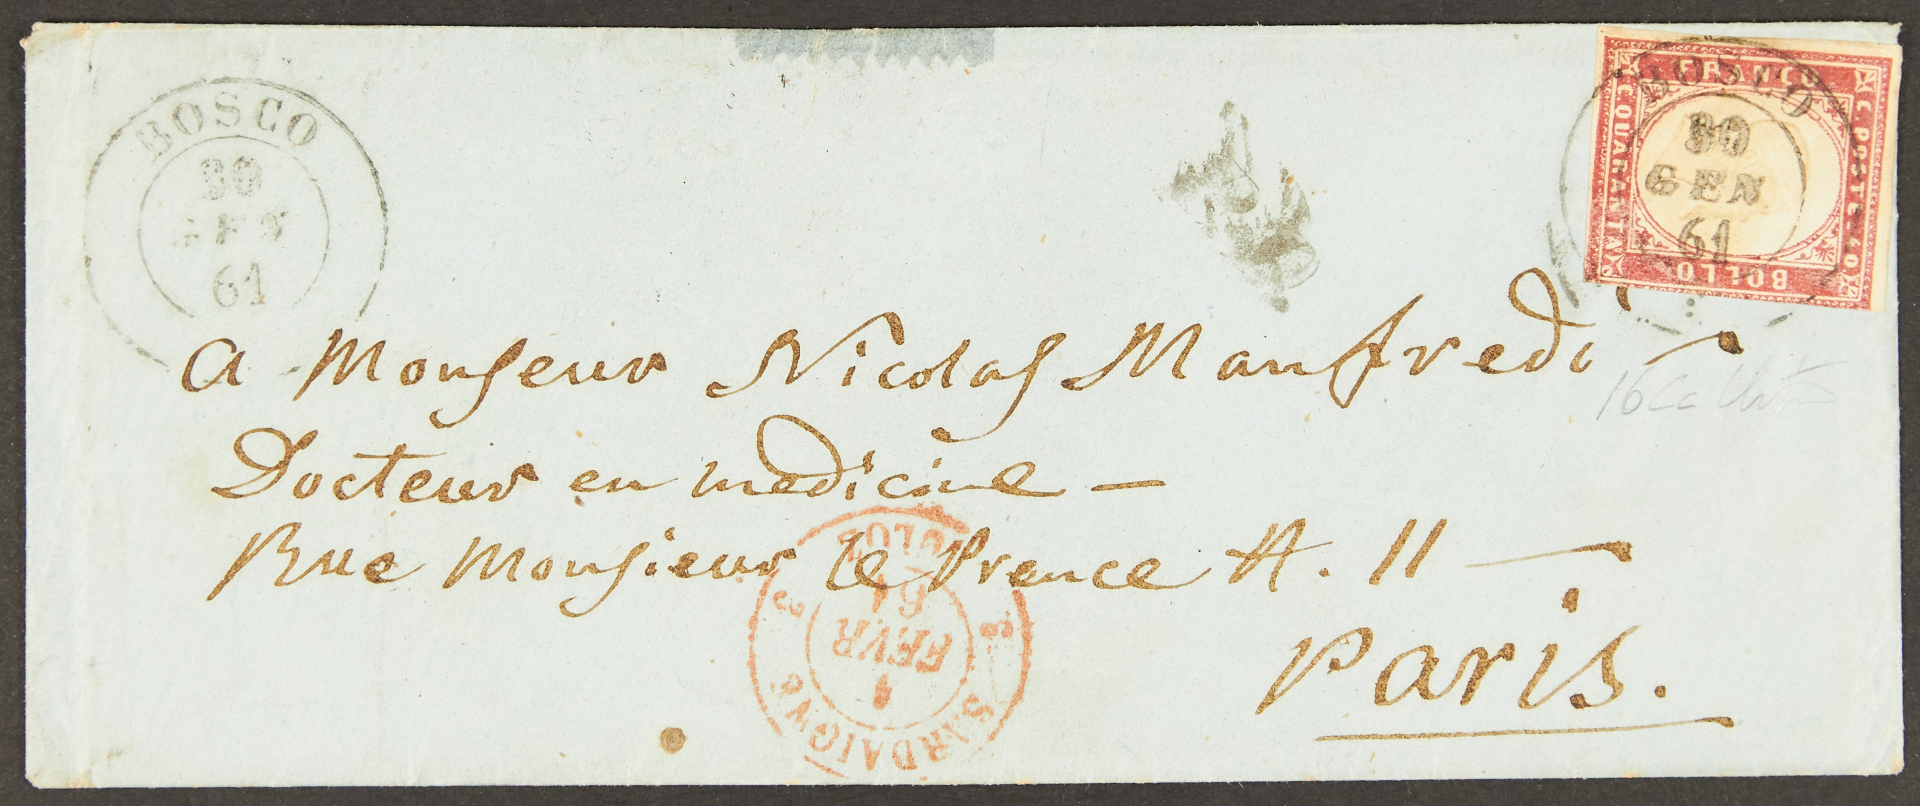 BOSCO
30
GEN
61
FRANCO
C. POSTE 40
BOLLO
C. QUARANTA
BOSCO
30
GEN
61
A Monsieur Nicolas Manfredi
Docteur en medicine —
Rue Monsieur le Prence N. 11 —
Paris.
SARDAIGNE
1
FEVR
61
CULOZ
3 3
16Cc